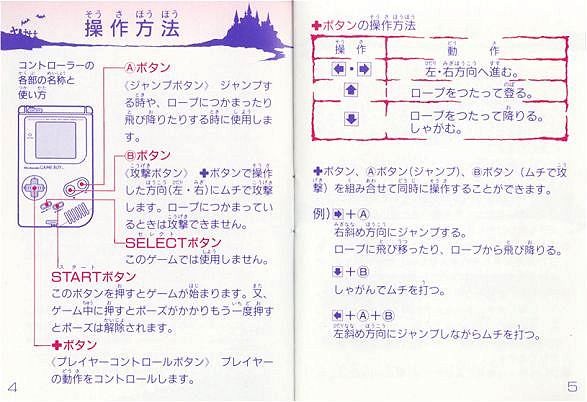 操作方法
コントローラーの
各部の名称と
使い方
Nintendo GAME BOY
Ⓐボタン
〈ジャンプボタン〉 ジャンプす
る時や、ロープにつかまったり
飛び降りたりする時に使用しま
す。
Ⓑボタン
〈攻撃ボタン〉 ✚ボタンで操作
した方向(左・右)にムチで攻撃
します。ロープにつかまってい
るときは攻撃できません。
SELECTボタン
このゲームでは使用しません。
STARTボタン
このボタンを押すとゲームが始まります。又、
ゲーム中に押すとポーズがかかりもう一度押す
とポーズは解除されます。
✚ボタン
〈プレイヤーコントロールボタン〉 プレイヤー
の動作をコントロールします。
4
✚ボタンの操作方法
操作 動作
⬅・➡ 左・右方向へ進む。
⬆ ロープをつたって登る。
⬇ ロープをつたって降りる。
しゃがむ。
✚ボタン、Ⓐボタン(ジャンプ)、Ⓑボタン(ムチで攻
撃)を組み合せて同時に操作することができます。
例)➡+Ⓐ
右斜め方向にジャンプする。
ロープに飛び移ったり、ロープから飛び降りる。
⬇+Ⓑ
しゃがんでムチを打つ。
⬅+Ⓐ+Ⓑ
左斜め方向にジャンプしながらムチを打つ。
5